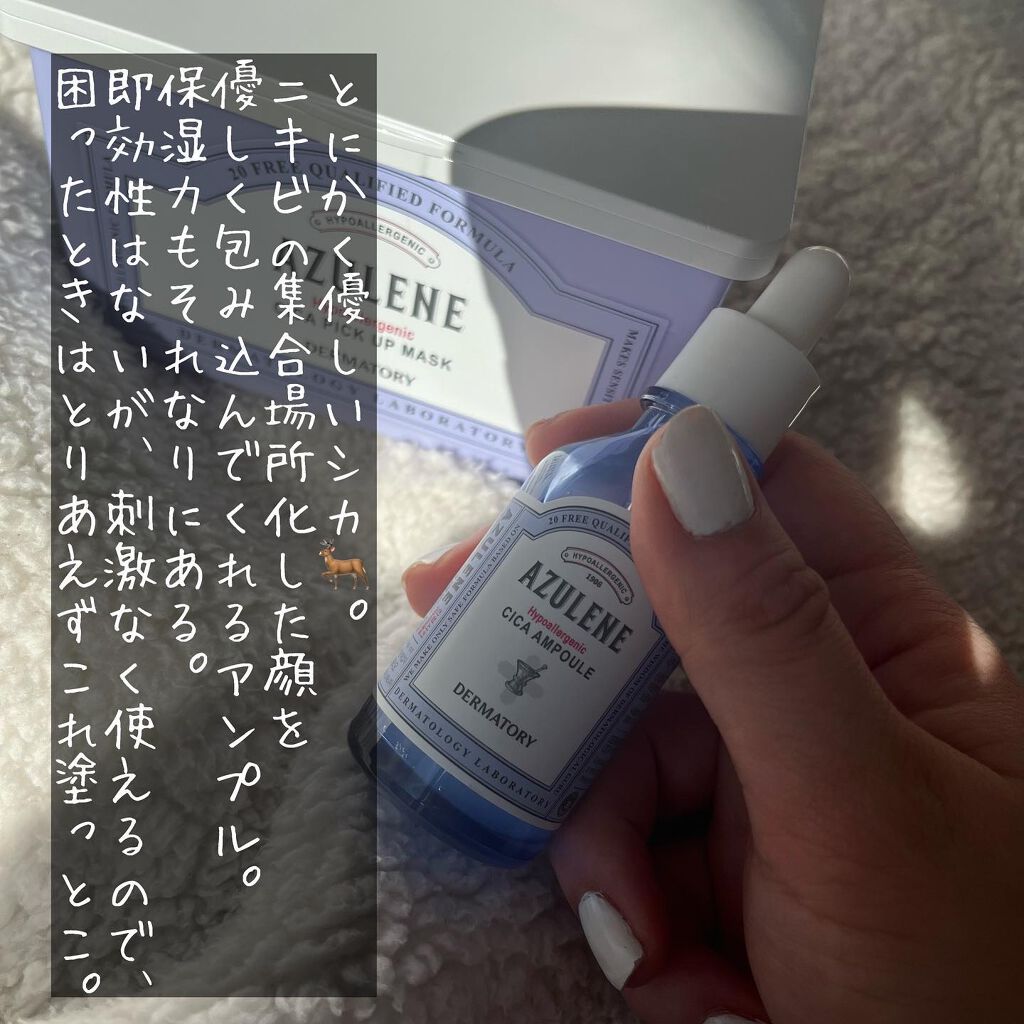 とにかく優しいシカ🦌。
ニキビの集合場所化した顔を
優しく包み込んでくれるアンプル。
保湿力もそれなりにある。
即効性はないが、刺激なく使えるので、
困ったときはとりあえずこれ塗っとこ。
20 FREE QUALIFIED FORMULA
HYPOALLERGENIC
AZULENE
Hypoallergenic
CICA PICK UP MASK
DERMATORY
DERMATOLOGY LABORATORY
MAKES SENSI
20 FREE QUALIF
HYPOALLERGENIC
1906
AZULENE
Hypoallergenic
CICA AMPOULE
DERMATORY
DERMATOLOGY LABORATORY
WE MAKE ONLY SAFE FORMULA BASED ON